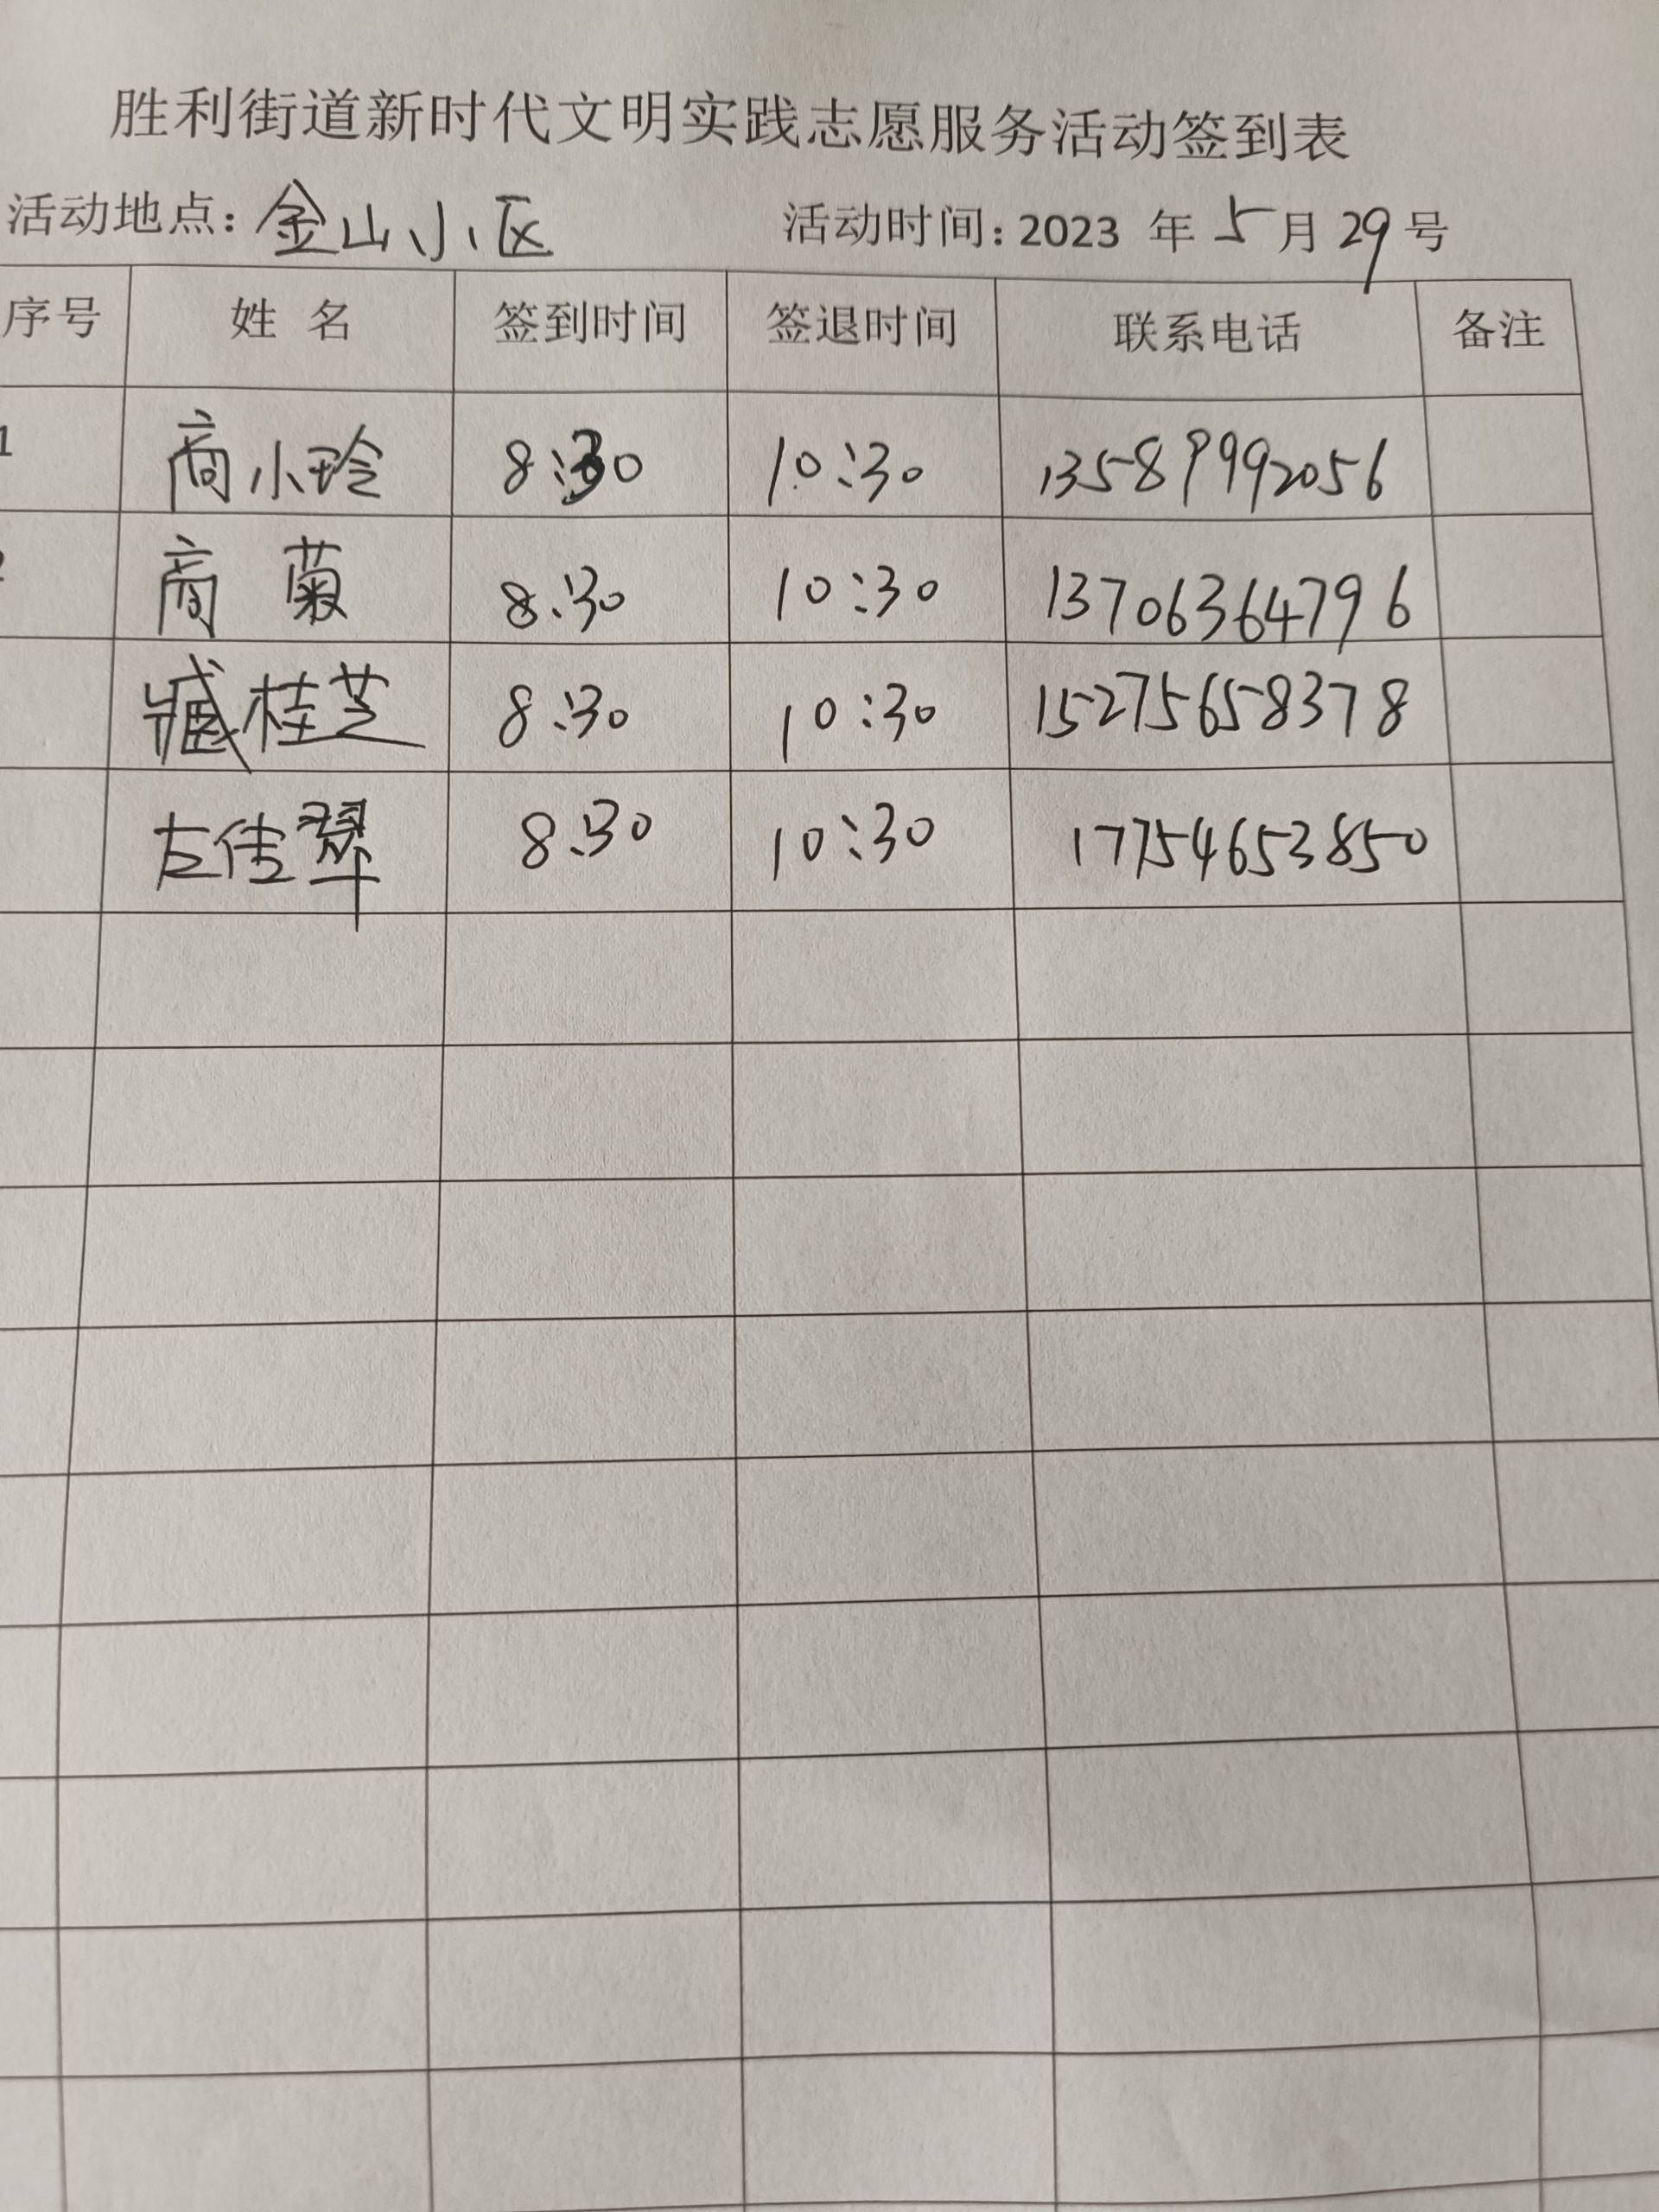 胜利街道新时代文明实践志愿服务活动签到表
活动地点：金山小区 活动时间：2023 年 5 月 29 号
序号 姓 名 签到时间 签退时间 联系电话 备注
1 商小玲 8:30 10:30 13589992056
2 商 菊 8:30 10:30 13706364796
臧桂芝 8:30 10:30 15275658378
左佳翠 8:30 10:30 17754653850